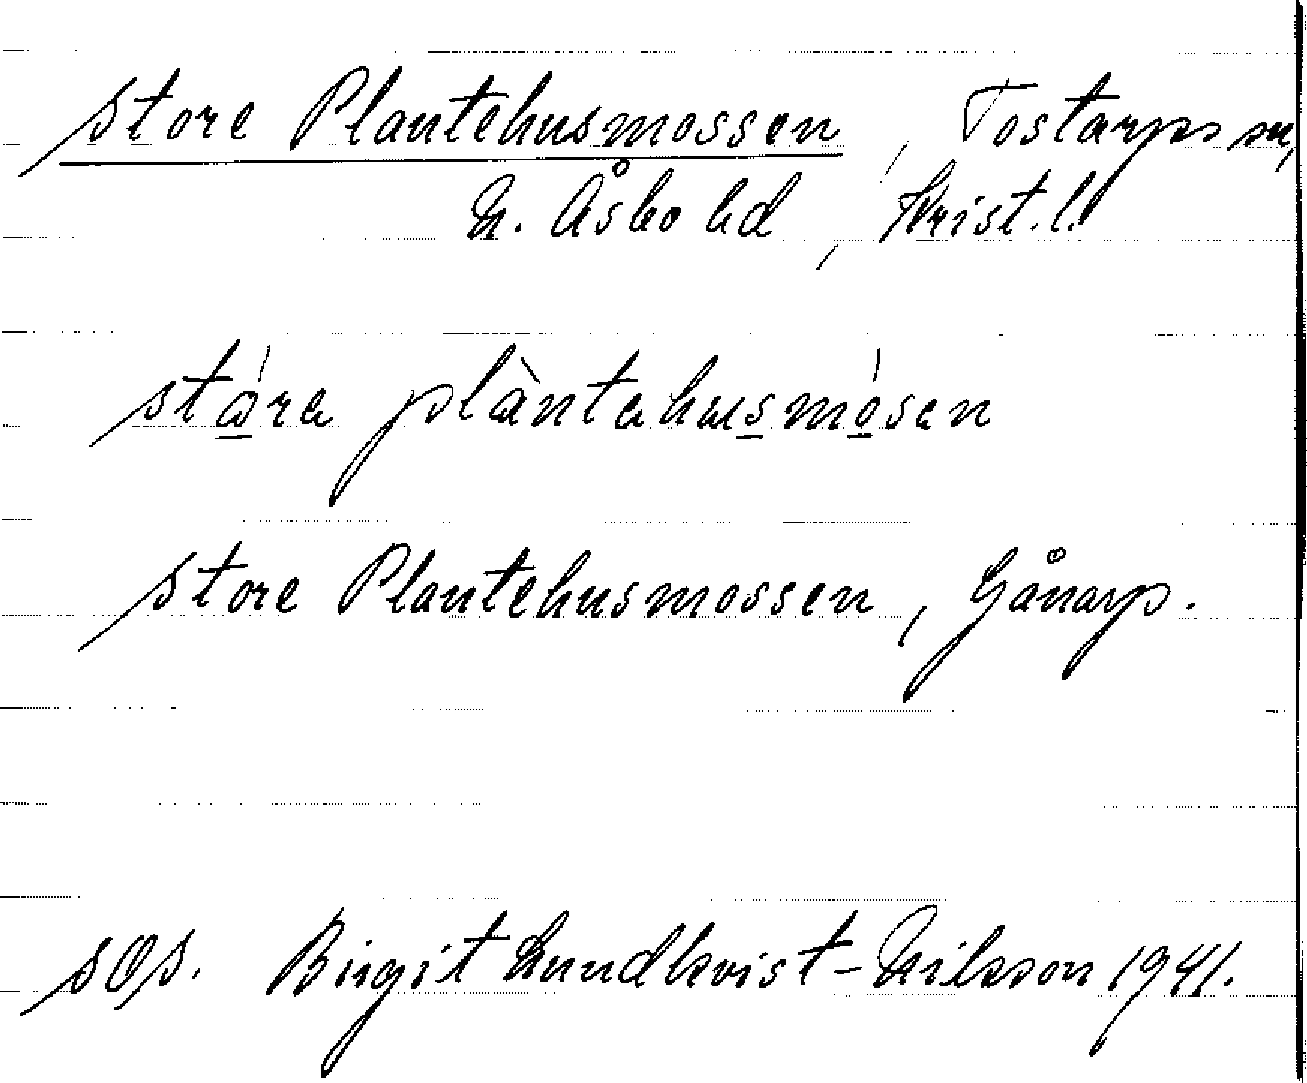 store Plantehusmossen, Tostarps sn,
N. Åsbo hd, Krist. l.
stǻra plàntahusmósen
store Plantehusmossen, Gånarp.
sOs. Birgit Lundkvist-Nilsson 1941.